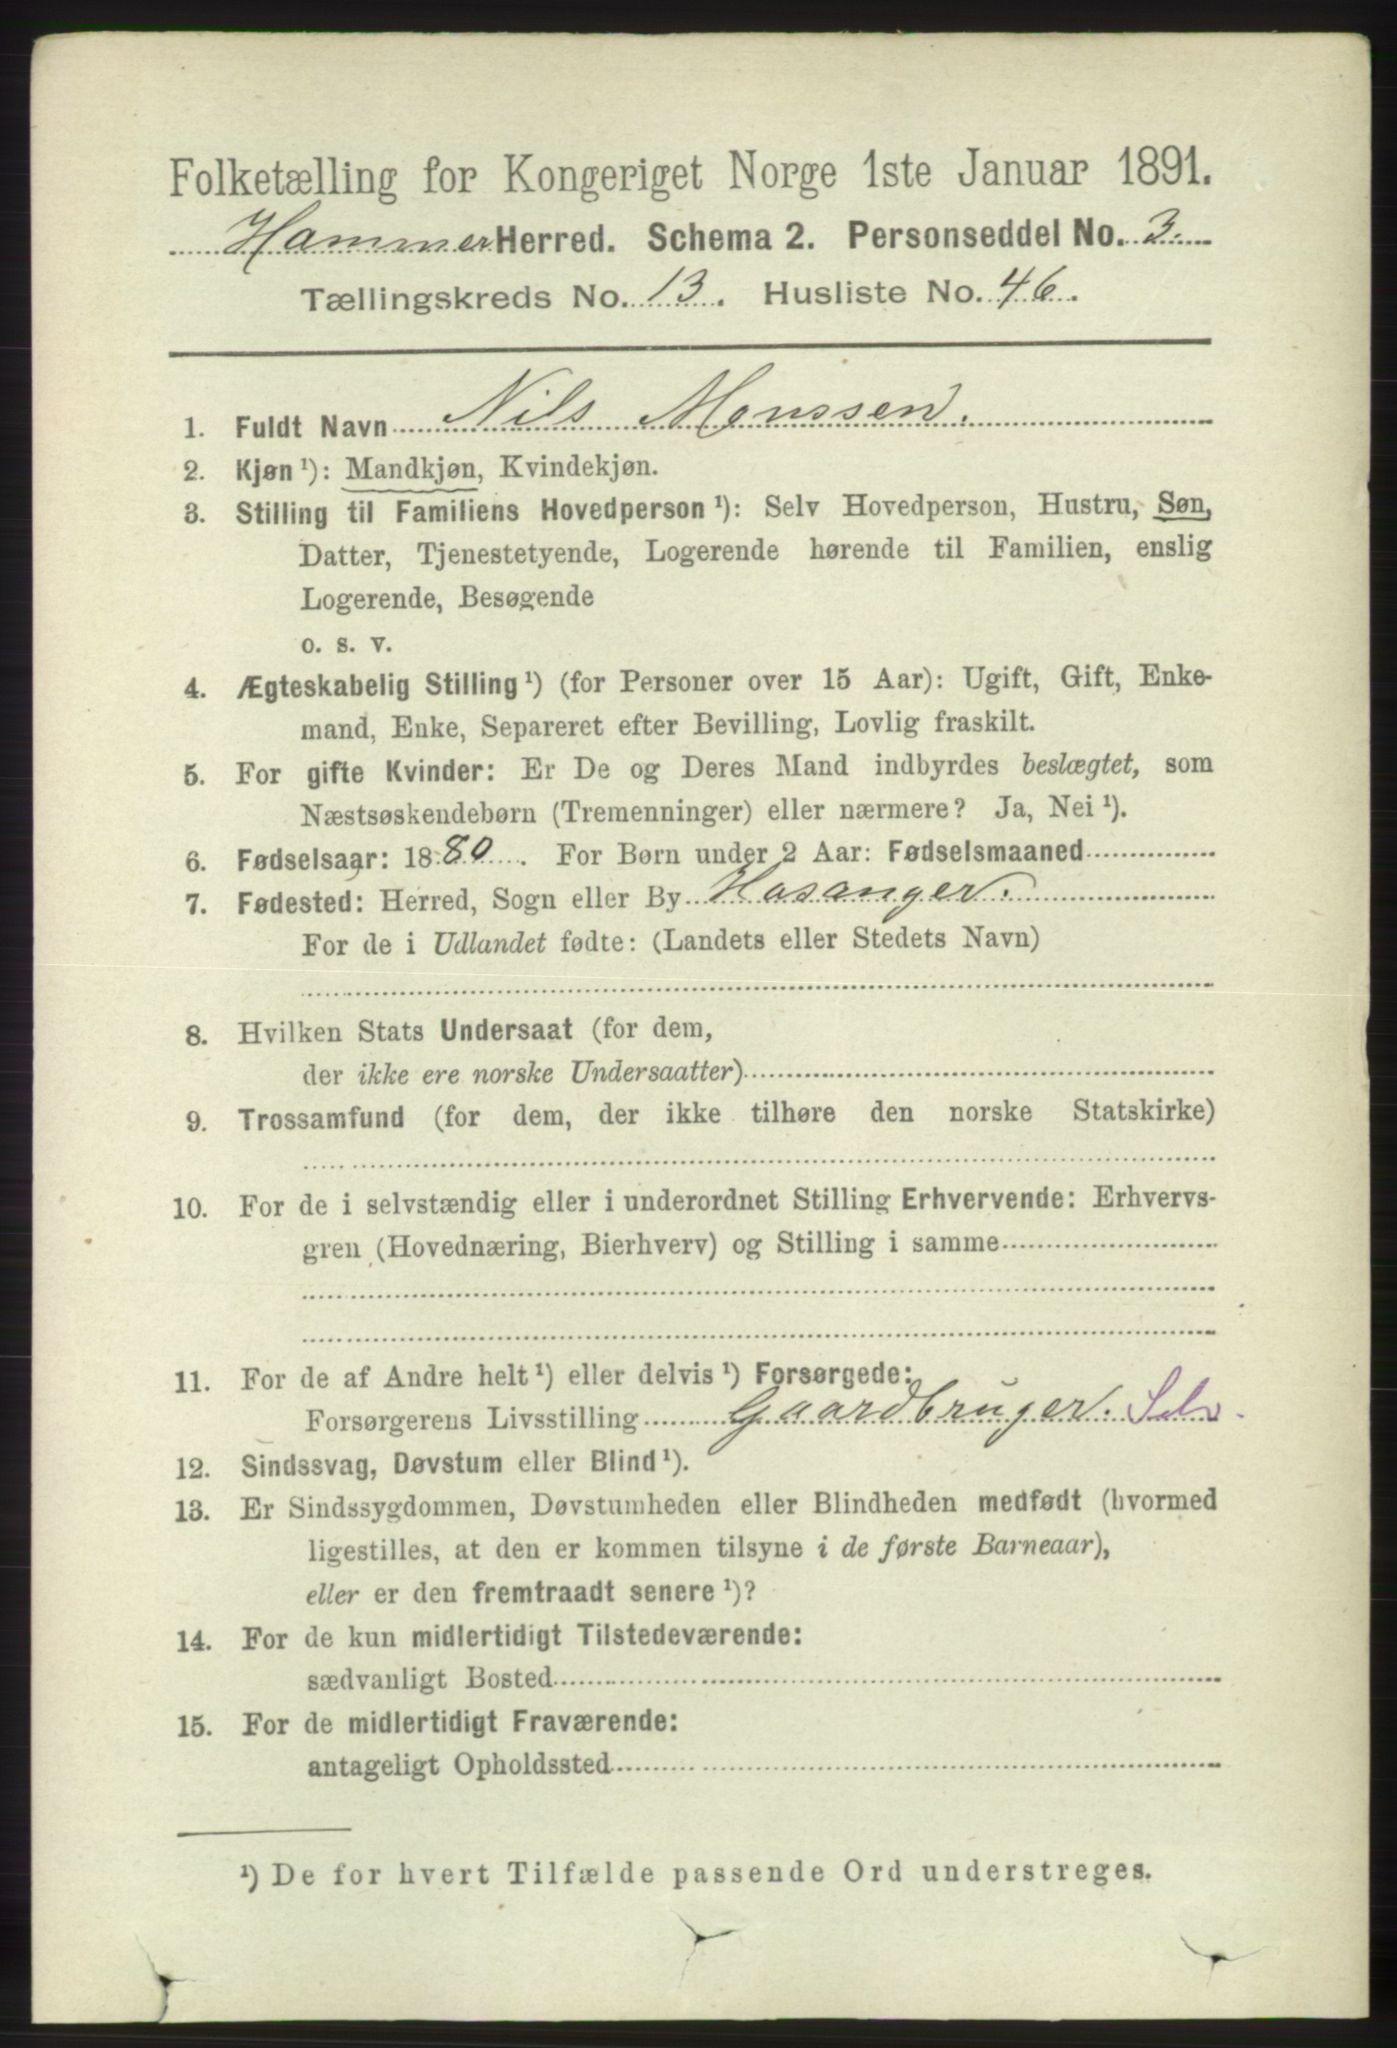 Folketælling for Kongeriget Norge 1ste Januar 1891.
Hammer Herred. Schema 2. Personseddel No. 3.
Tællingskreds No. 13. Husliste No. 46.
1. Fuldt Navn Nils Monssen.
2. Kjøn ¹): Mandkjøn, Kvindekjøn.
3. Stilling til Familiens Hovedperson ¹): Selv Hovedperson, Hustru, Søn,
Datter, Tjenestetyende, Logerende hørende til Familien, enslig
Logerende, Besøgende
o. s. v.
4. Ægteskabelig Stilling ¹) (for Personer over 15 Aar): Ugift, Gift, Enke-
mand, Enke, Separeret efter Bevilling, Lovlig fraskilt.
5. For gifte Kvinder: Er De og Deres Mand indbyrdes beslægtet, som
Næstsøskendebørn (Tremenninger) eller nærmere? Ja, Nei ¹).
6. Fødselsaar: 1880. For Børn under 2 Aar: Fødselsmaaned
7. Fødested: Herred, Sogn eller By Hosanger.
For de i Udlandet fødte: (Landets eller Stedets Navn)
8. Hvilken Stats Undersaat (for dem,
der ikke ere norske Undersaatter)
9. Trossamfund (for dem, der ikke tilhøre den norske Statskirke)
10. For de i selvstændig eller i underordnet Stilling Erhvervende: Erhvervs-
gren (Hovednæring, Bierhverv) og Stilling i samme
11. For de af Andre helt ¹) eller delvis ¹) Forsørgede:
Forsørgerens Livsstilling Gaardbruger. Selv.
12. Sindssvag, Døvstum eller Blind ¹).
13. Er Sindssygdommen, Døvstumheden eller Blindheden medfødt (hvormed
ligestilles, at den er kommen tilsyne i de første Barneaar),
eller er den fremtraadt senere ¹)?
14. For de kun midlertidigt Tilstedeværende:
sædvanligt Bosted
15. For de midlertidigt Fraværende:
antageligt Opholdssted
¹) De for hvert Tilfælde passende Ord understreges.